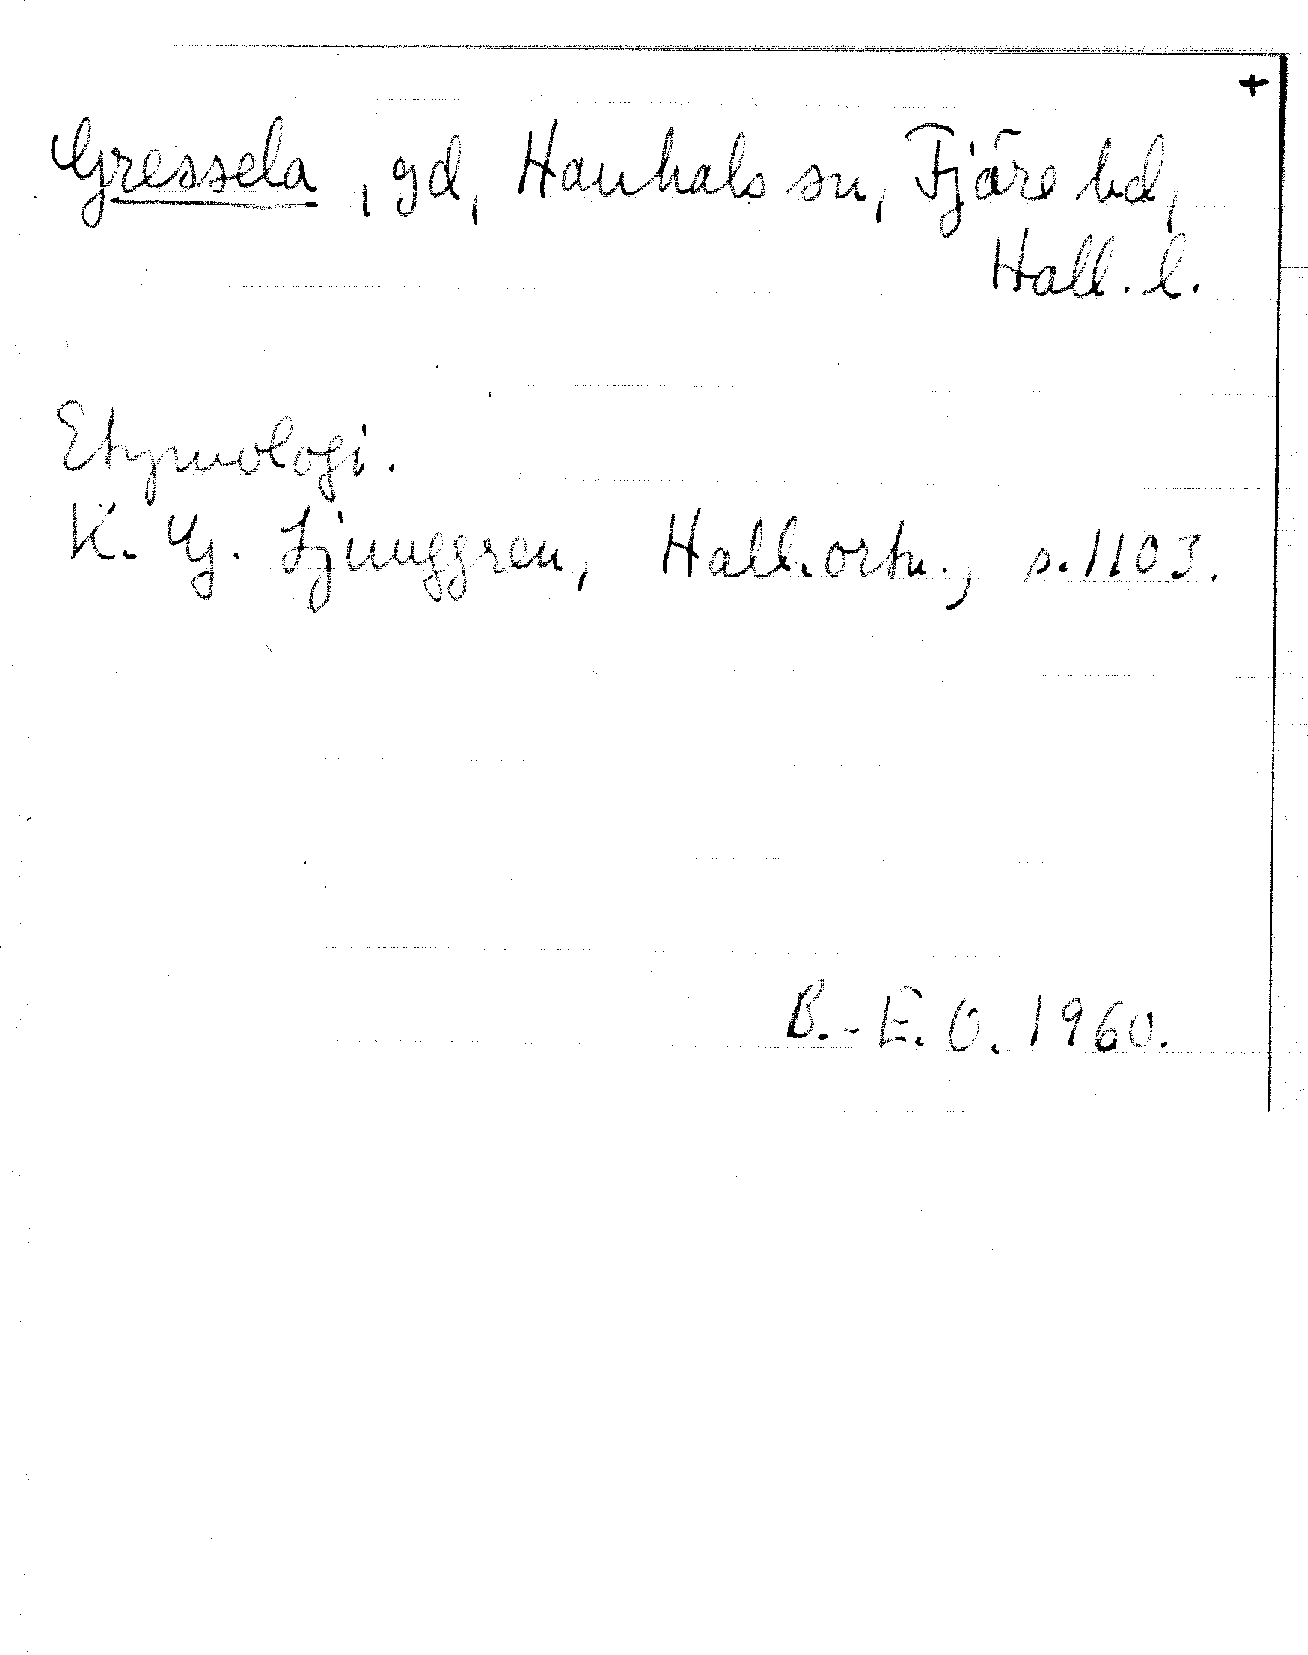 +
Gressela, gd, Hanhals sn, Fjäre hd,
Hall. l.
Etymologi.
K. G. Ljunggren, Hall. ortn., s. 1103.
B.-E. O. 1960.